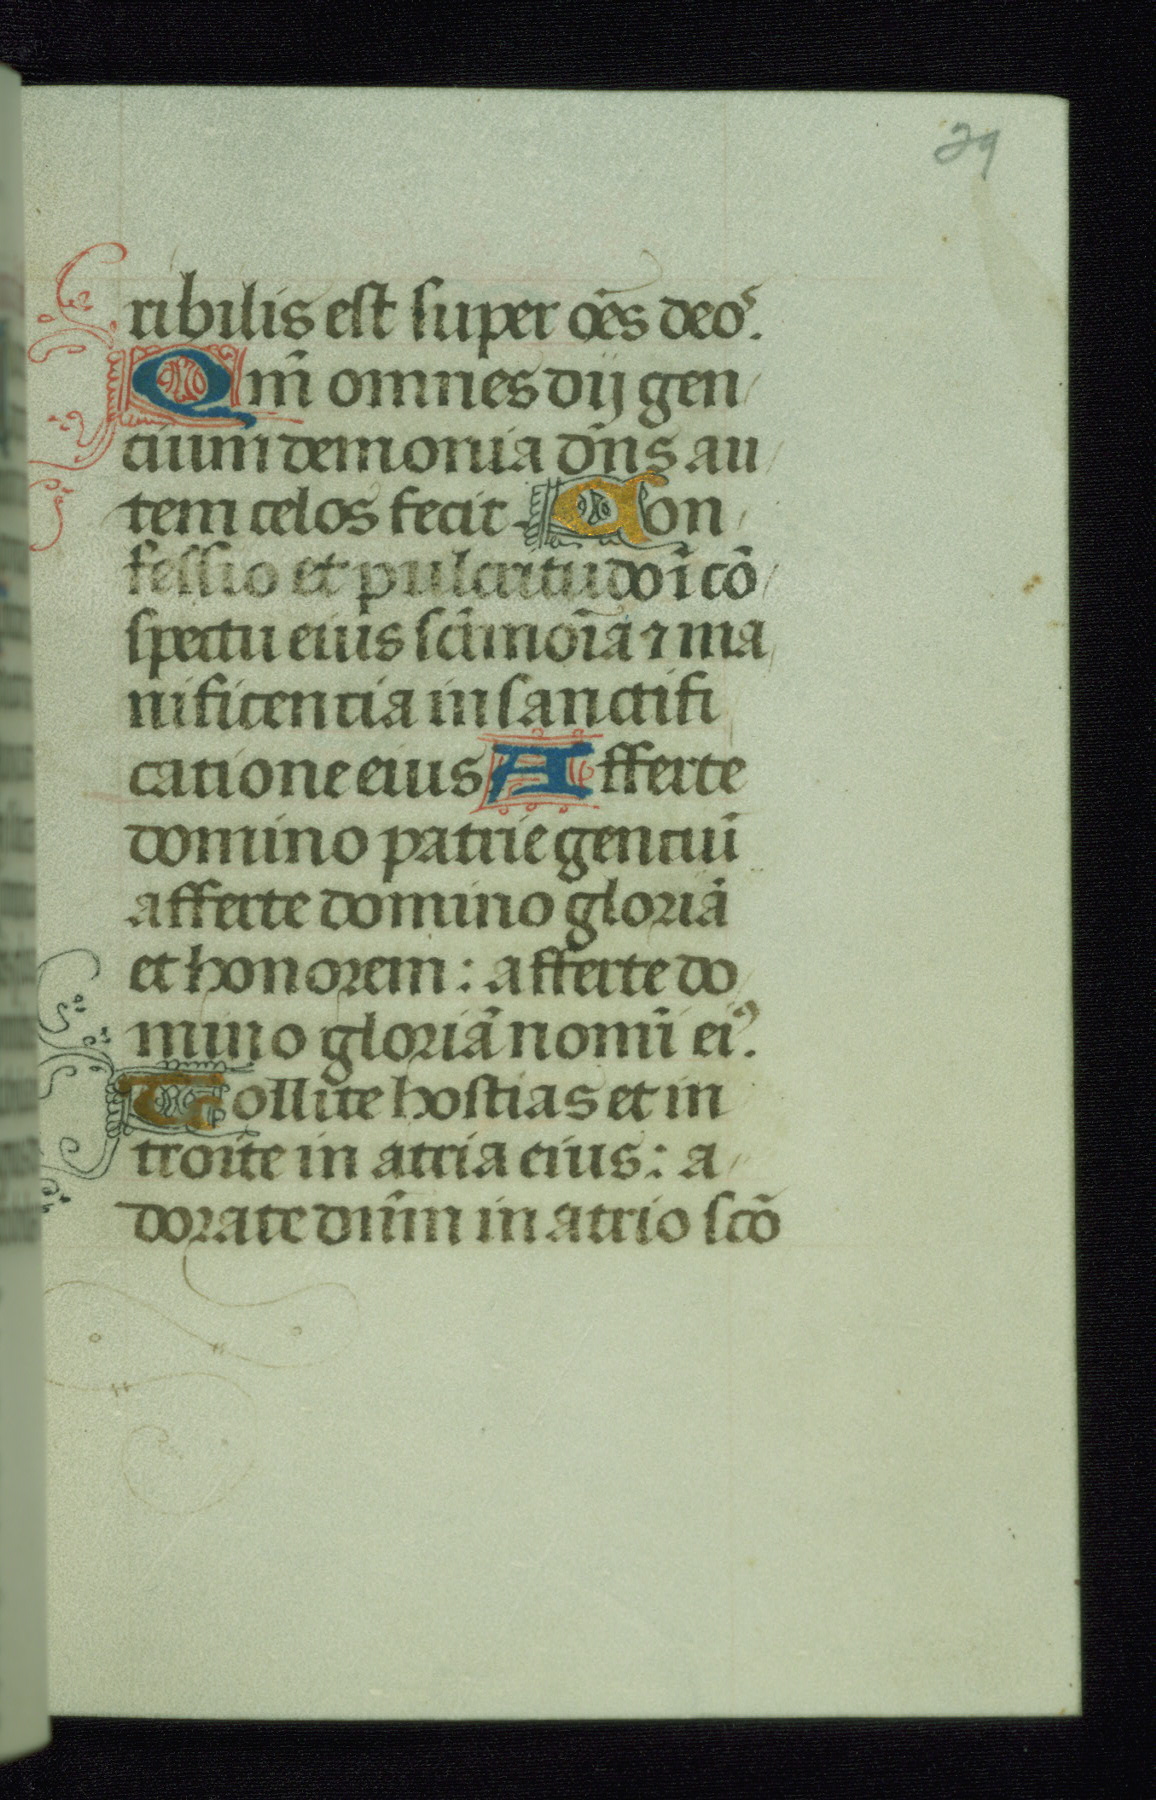 29
ribilis est super oēs deos.
Qm̄ omnes dij gen
tium demonia dn̄s au
tem celos fecit. Con
fessio et pulcritudo ī cō
spectu eius scīmoīa ⁊ ma
nificencia in sanctifi
catione eius Afferte
domino patrie genciū
afferte domino gloriā
et honorem: afferte do
mino gloriā nomī eiꝰ.
Tollite hostias et in
troite in atria eius: a
dorate dnm̄ in atrio scō